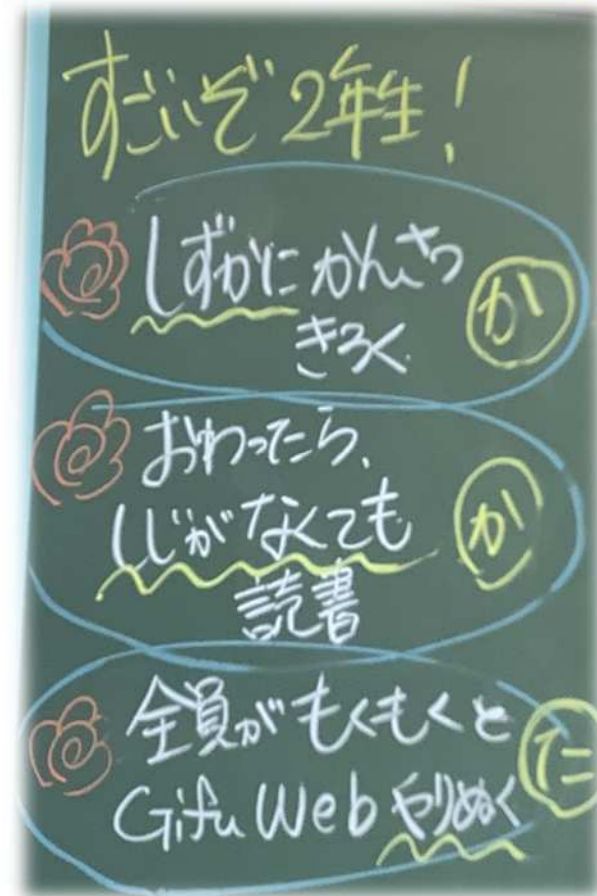 すごいぞ2年生!
しずかにかんさつ
きろく
か
おわったら、
しじがなくても
読書
か
全員がもくもくと
Gifu Web やりぬく
た